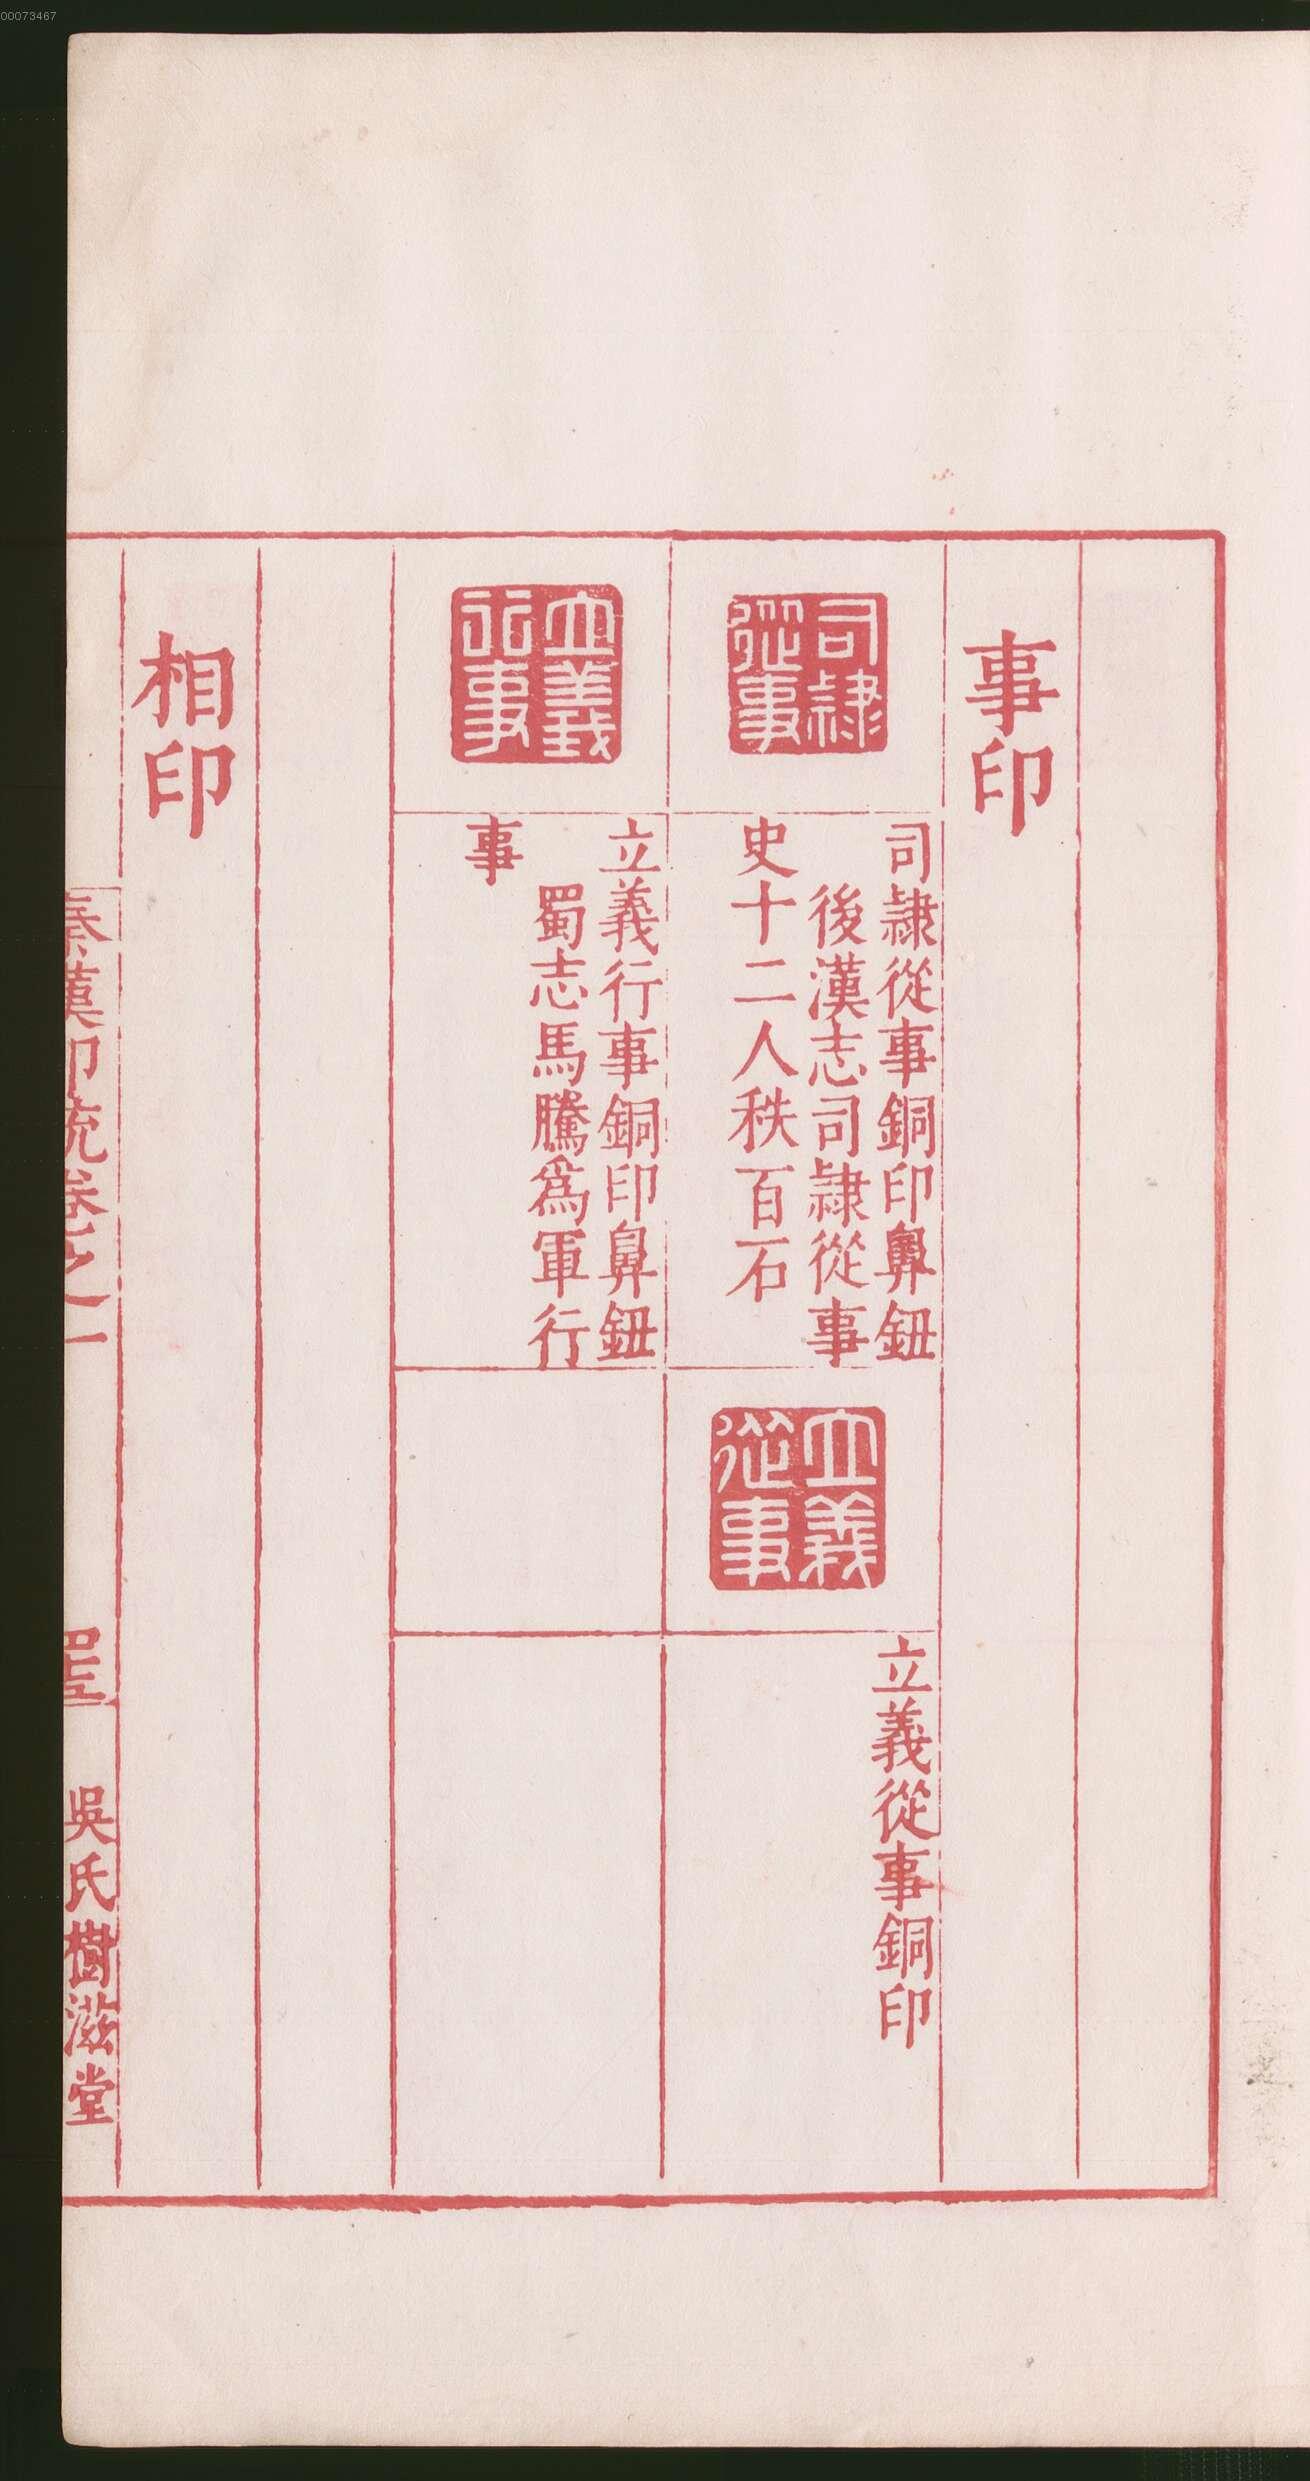 00073467
事印
司隷
從事
司隷從事銅印鼻鈕
後漢志司隷從事
史十二人秩百石
立義
從事
立義從事銅印
立義
行事
立義行事銅印鼻鈕
蜀志馬騰爲軍行
事
相印
秦漢印統卷之一
吳氏樹滋堂